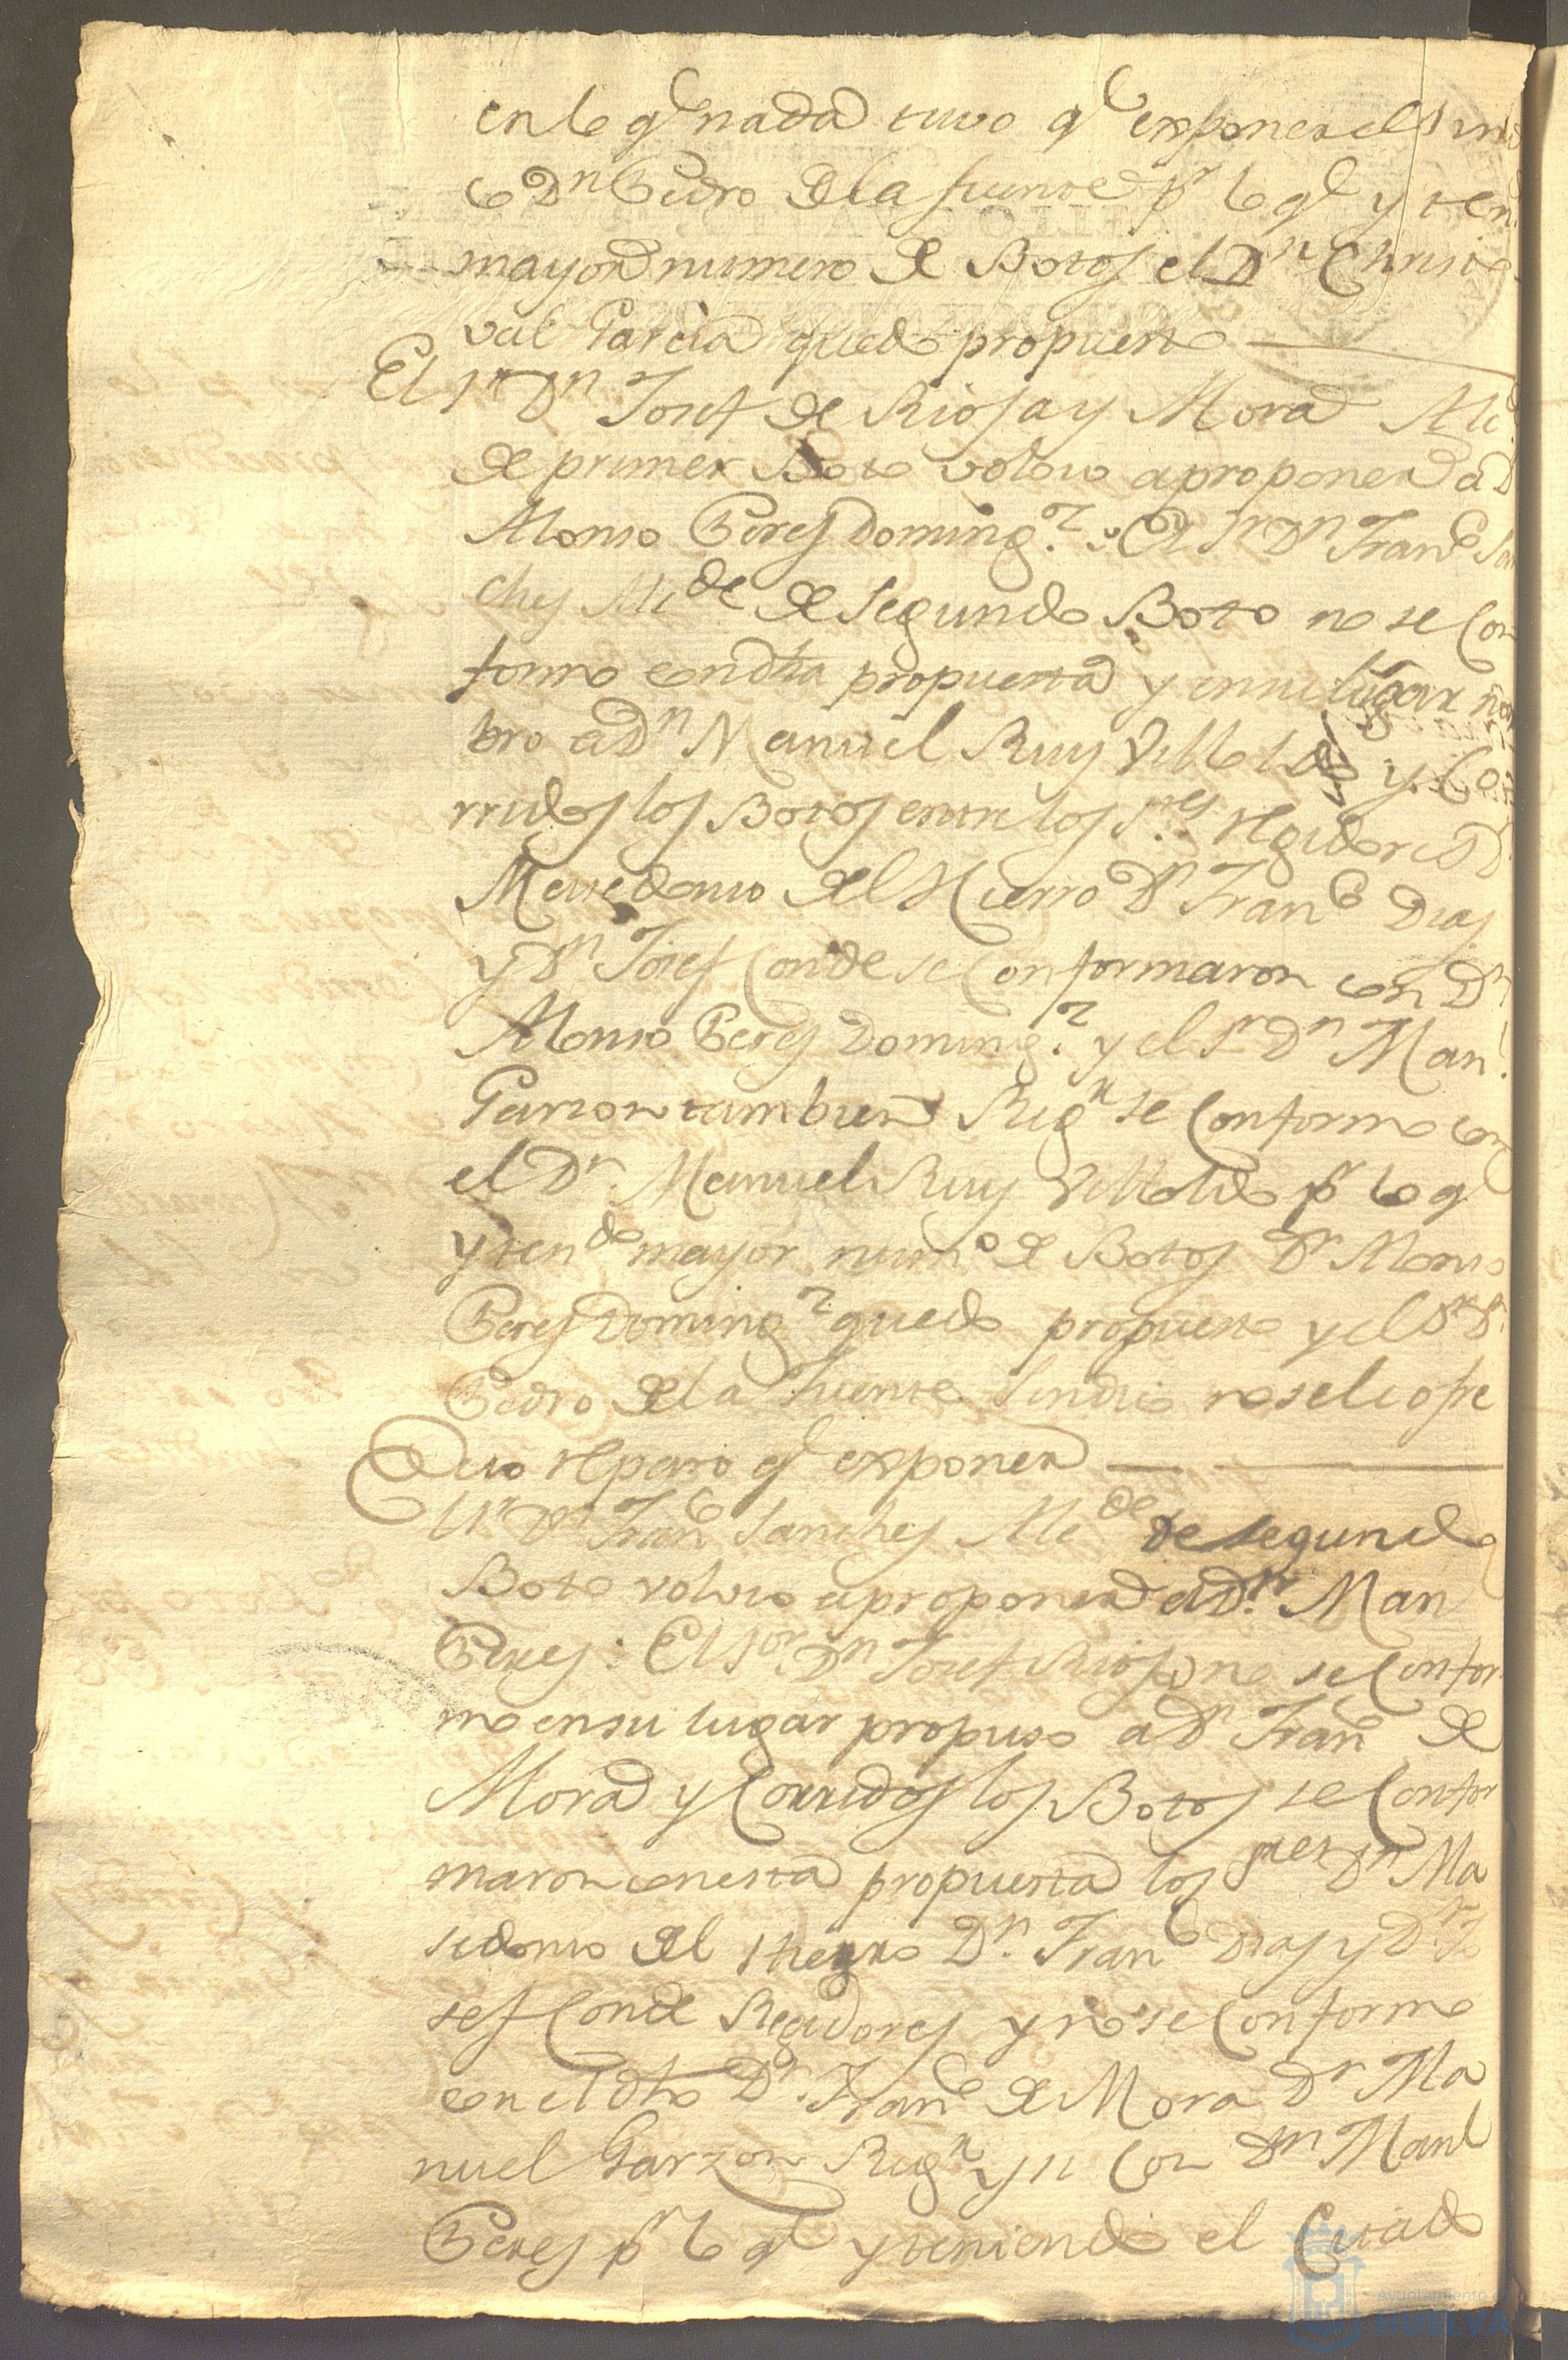 en lo qe nada tuvo qe exponer el Sindi
co Dn Pedro de la fuente pr lo qe y ten
mayor numero de Botos el Dn Christo
val Garcia quedo propuesto
El Sr Dn Josef de Rioja y Mora Alc
de primer Boto volvio a proponer a D
Alonso Peres Domingz. El Sr Dn Franco San
ches Alcde de segundo Boto no se Con
formo con dha propuesta y en su lugar nom
bro a Dn Manuel Ruiz y Co
rridos los Botos entre los Sres regidores D
Macedonio del Hierro Dn Franco Dias
y Dn Josef Conde se Conformaron con Dn
Alonso Peres Domingz. y el Sr Dn Manl
Garzon tambien Regr se Conformo con
el Dn. Manuel Ruiz pr lo q
y tendo mayor numo de Botos Dn Alonso
Peres Domingz quedo propuesto y el Sr D.
Pedro de la fuente Sindico no se le ofre
cio reparo qe exponer
El Sr Dn Franco Sanches Alcde de segundo
Boto volvio a proponer a Dn. Man
Peres: El Sor. Dn Josef Rioja no se Confor
mo en su lugar propuso a Dn Franco de
Mora y Corridos los Botos se Confor
maron con esta propuesta los Sres Dn Ma
sedonio del Hierro Dn. Franco Dias y Dn Jo
sef Conde Regidores y no se Conformo
con el dho Dn. Franco de Mora Dn Ma
nuel Garzon Regr y si Con Dn Manl
Peres pr lo qe y teniendo el Citado
Ayuntamiento de
HUELVA